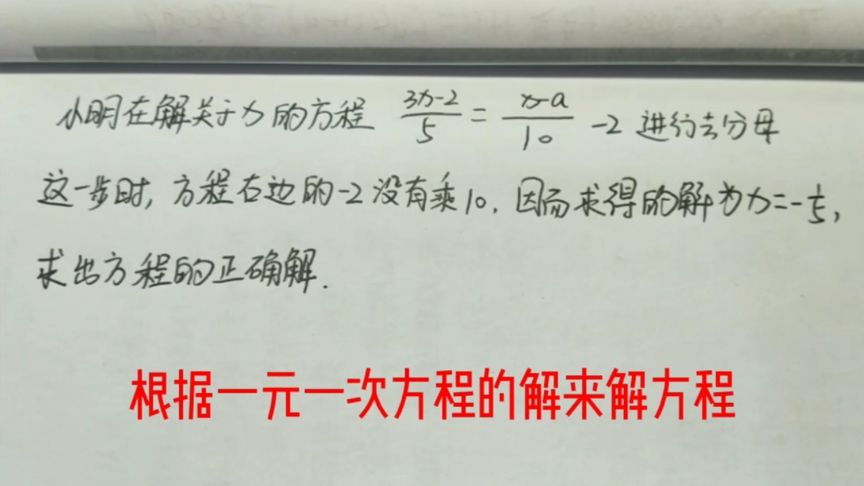 小明在解关于x的方程 (3x-2)/5 = (x-a)/10 -2 进行去分母
这一步时,方程右边的-2没有乘10,因而求得的解为x=-1/5,
求出方程的正确解.
根据一元一次方程的解来解方程